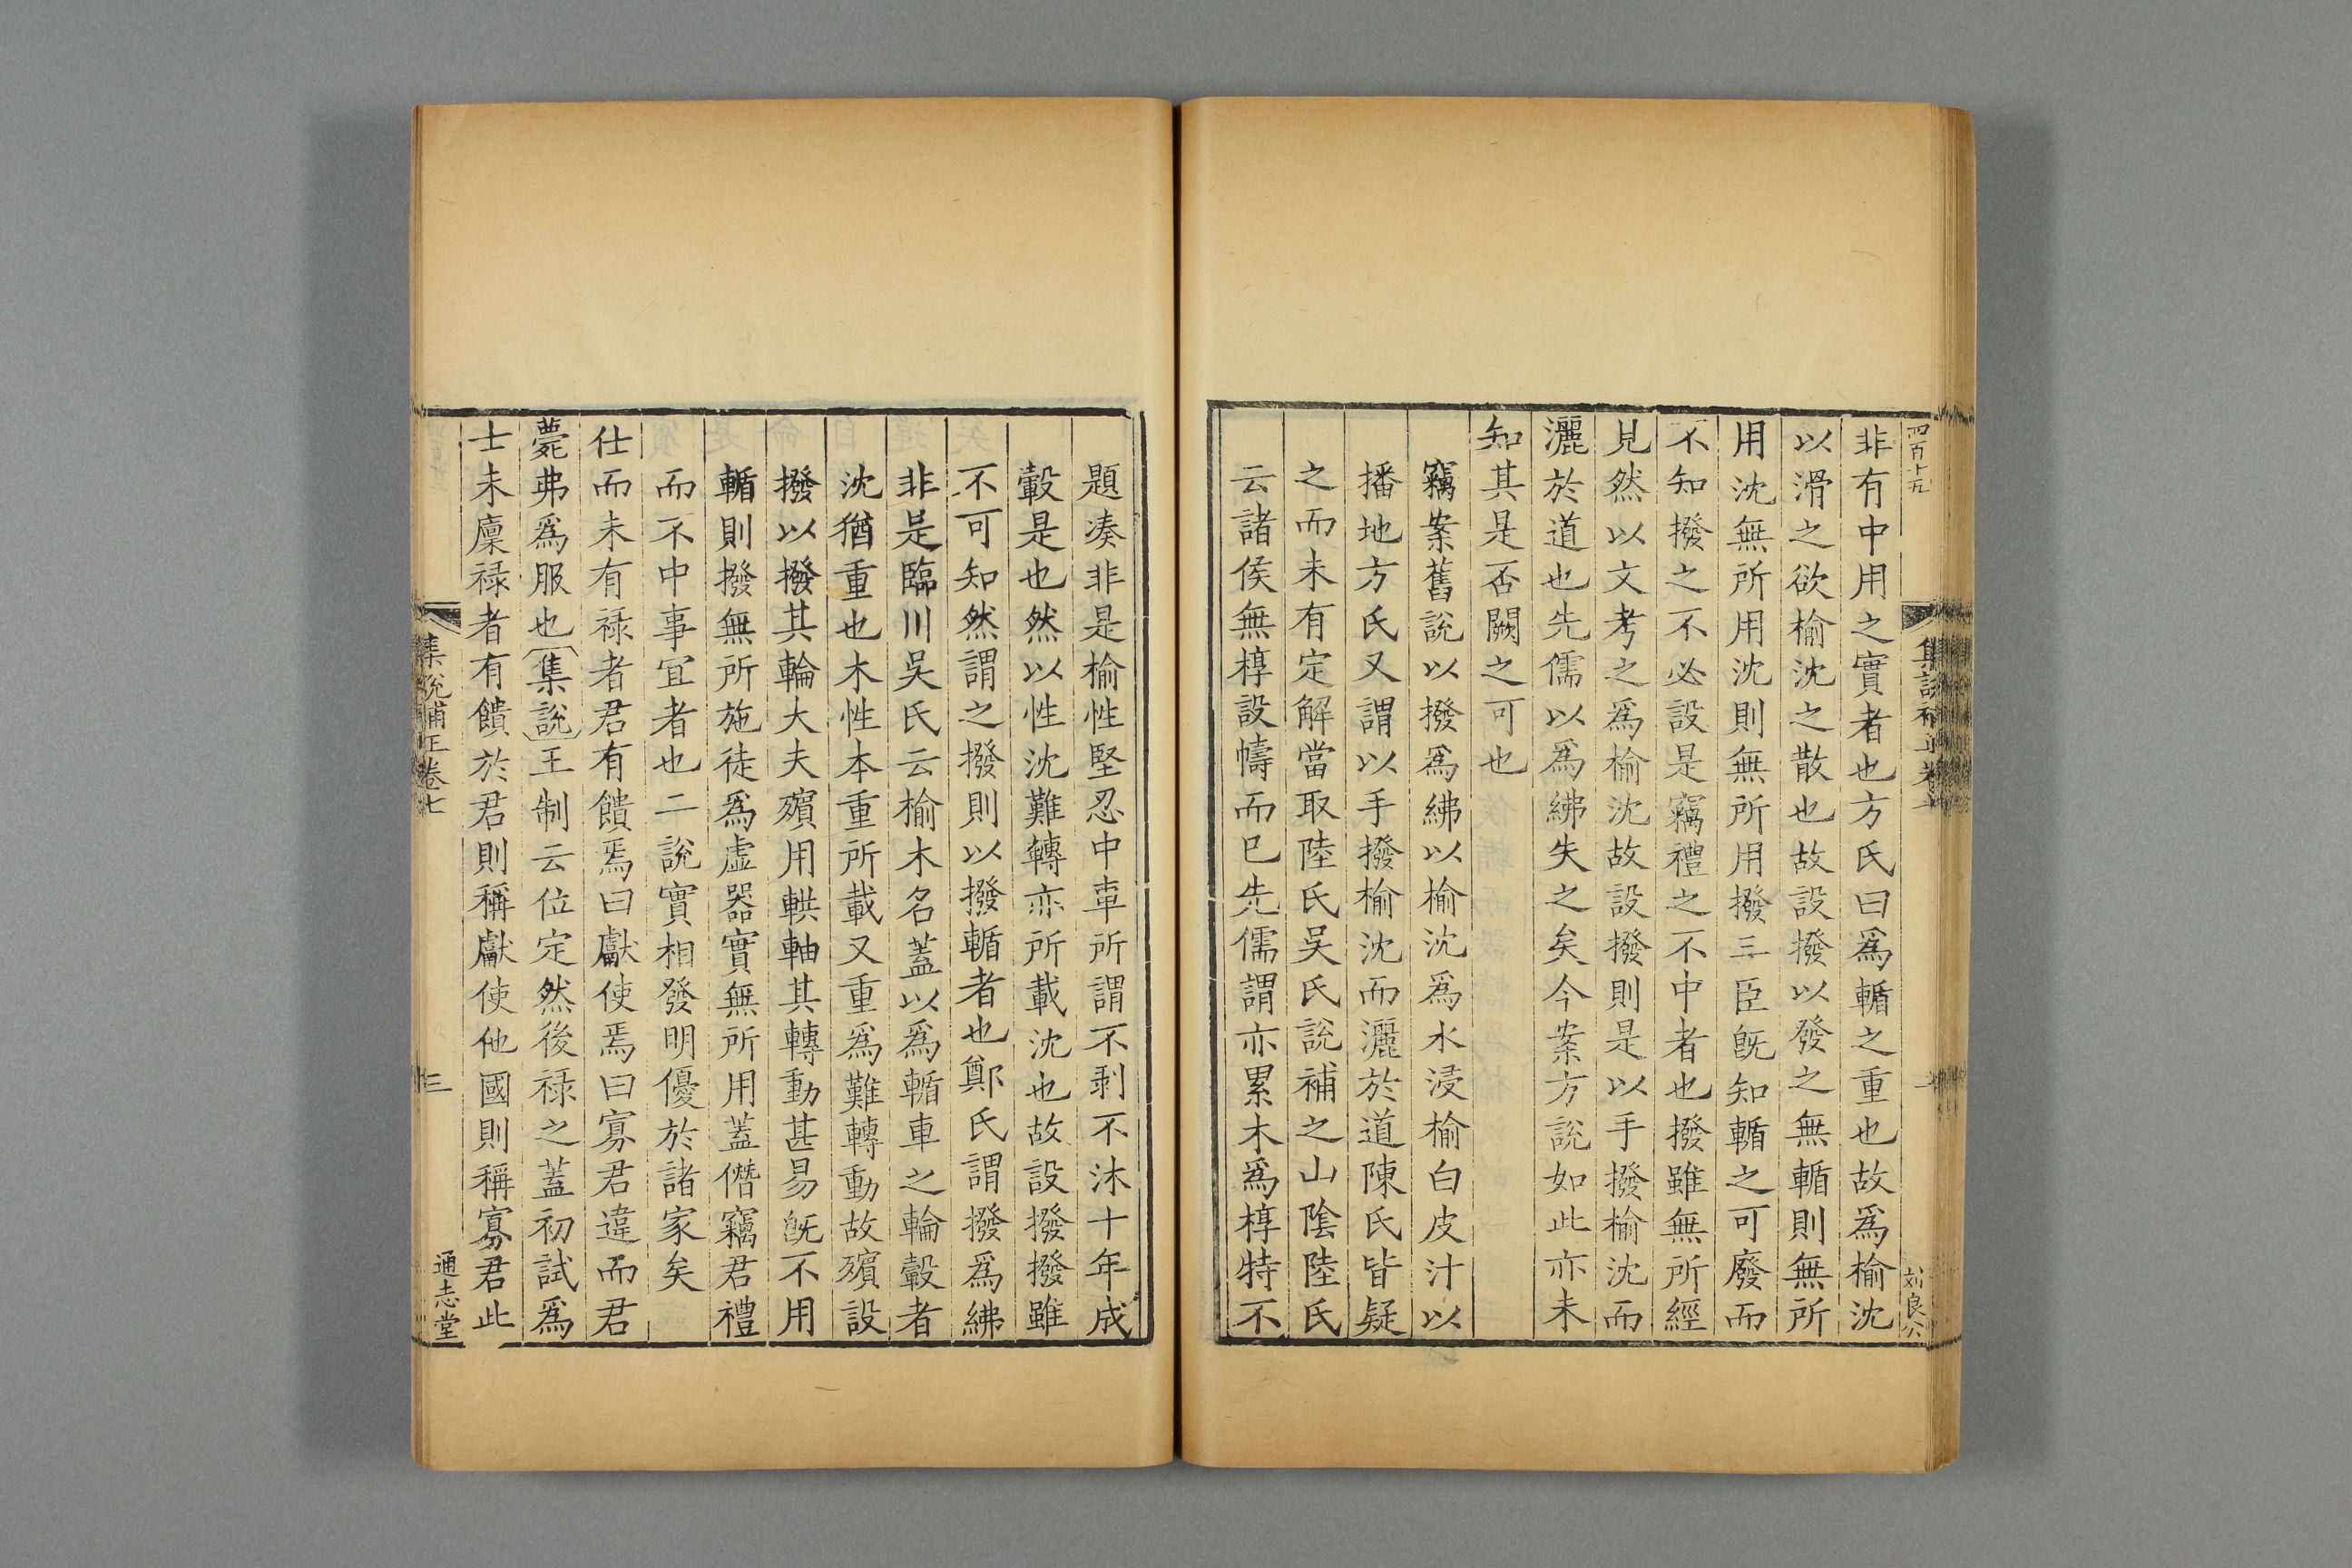 四百十九
集説補正卷七
刘良公
非有中用之實者也方氏曰爲輴之重也故爲榆沈
以滑之欲榆沈之散也故設撥以發之無輴則無所
用沈無所用沈則無所用撥三臣旣知輴之可廢而
不知撥之不必設是竊禮之不中者也撥雖無所經
見然以文考之爲榆沈故設撥則是以手撥榆沈而
灑於道也先儒以爲紼失之矣今案方說如此亦未
知其是否闕之可也
竊案舊說以撥爲紼以榆沈爲水浸榆白皮汁以
播地方氏又謂以手撥榆沈而灑於道陳氏皆疑
之而未有定解當取陸氏吳氏說補之山陰陸氏
云諸侯無椁設幬而已先儒謂亦累木爲椁特不
題凑非是榆性堅忍中車所謂不剥不沐十年成
轂是也然以性沈難轉亦所載沈也故設撥撥雖
不可知然謂之撥則以撥輴者也鄭氏謂撥爲紼
非是臨川吳氏云榆木名蓋以爲輴車之輪轂者
沈猶重也木性本重所載又重爲難轉動故殯設
撥以撥其輪大夫殯用輁軸其轉動甚易旣不用
輴則撥無所施徒爲虛器實無所用蓋僭竊君禮
而不中事宜者也二說實相發明優於諸家矣
仕而未有祿者君有饋焉曰獻使焉曰寡君違而君
薨弗爲服也集說王制云位定然後祿之蓋初試爲
士未廩祿者有饋於君則稱獻使他國則稱寡君此
集說補正卷七
三
通志堂